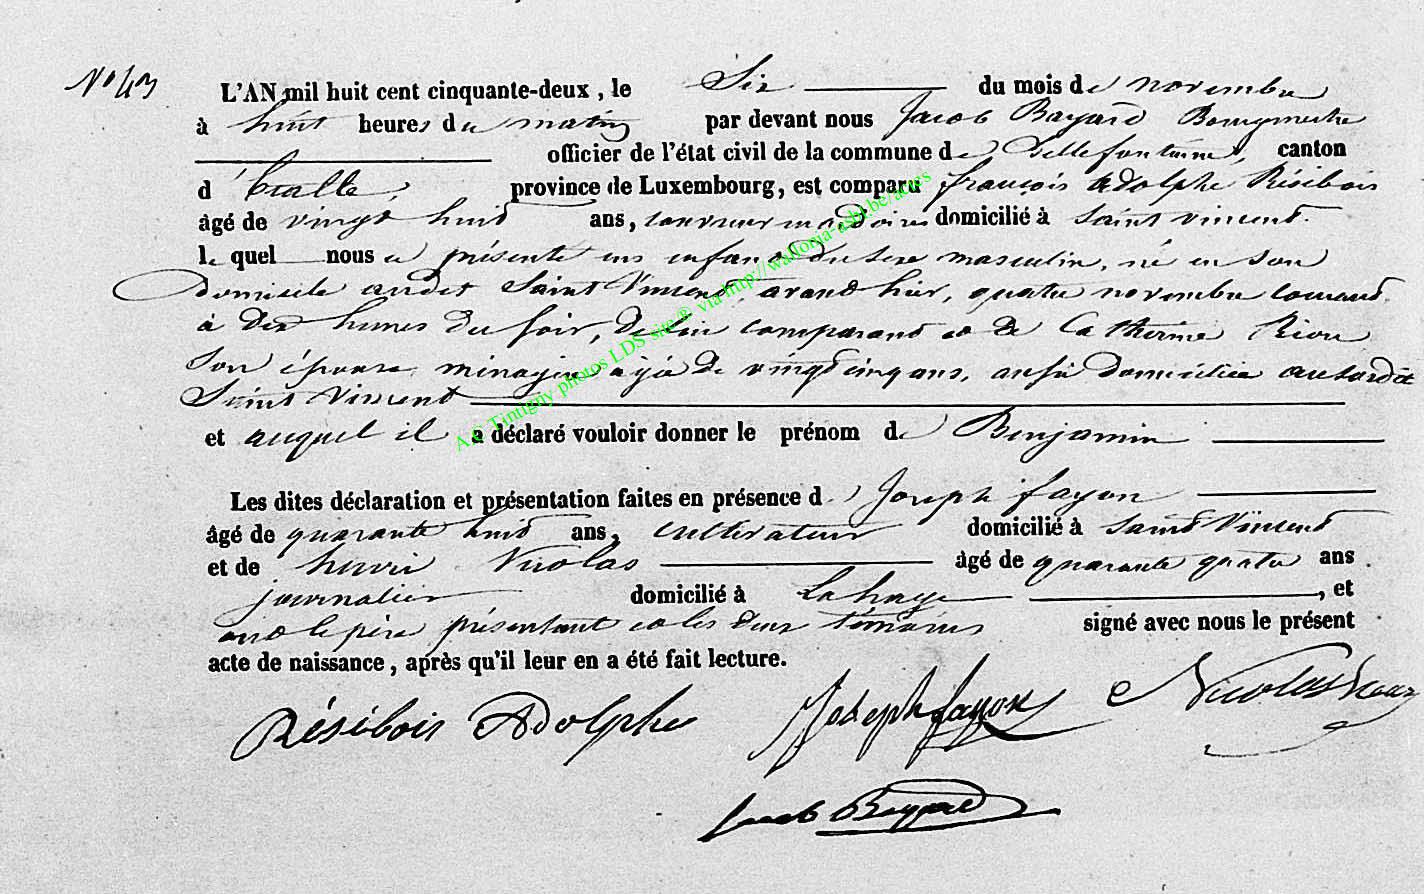 N° 43
L'AN mil huit cent cinquante-deux, le Six du mois de novembre
à huit heures du matin par devant nous Jacob Bayard Bourgmestre
officier de l'état civil de la commune de Bellefontaine, canton
d'Étalle, province de Luxembourg, est comparu françois Adolphe Résibois
âgé de vingt huit ans, domicilié à Saint vincent.
le quel nous a présenté un enfant du sexe masculin, né en son
Domicile audit Saint Vincent, avant hier, quatre novembre courant
à dix heures du soir, de lui comparant et de Catherine Rion
Son épouse, ménagère agée de vingt cinq ans, aussi Domiciliée au susdit
Saint Vincent
et auquel il a déclaré vouloir donner le prénom de Benjamin
Les dites déclaration et présentation faites en présence de Joseph fayon
âgé de quarante huit ans, cultivateur domicilié à Saint Vincent
et de henri Nicolas âgé de quarante quatre ans
journalier domicilié à Lahage, et
ont le père présentant et les deux témoins signé avec nous le présent
acte de naissance, après qu'il leur en a été fait lecture.
Résibois Adolphe Joseph fayon Nicolas
Jacob Bayard
A.C. Tintigny photos LDS site® via http://wallonia-asbl.be/actes